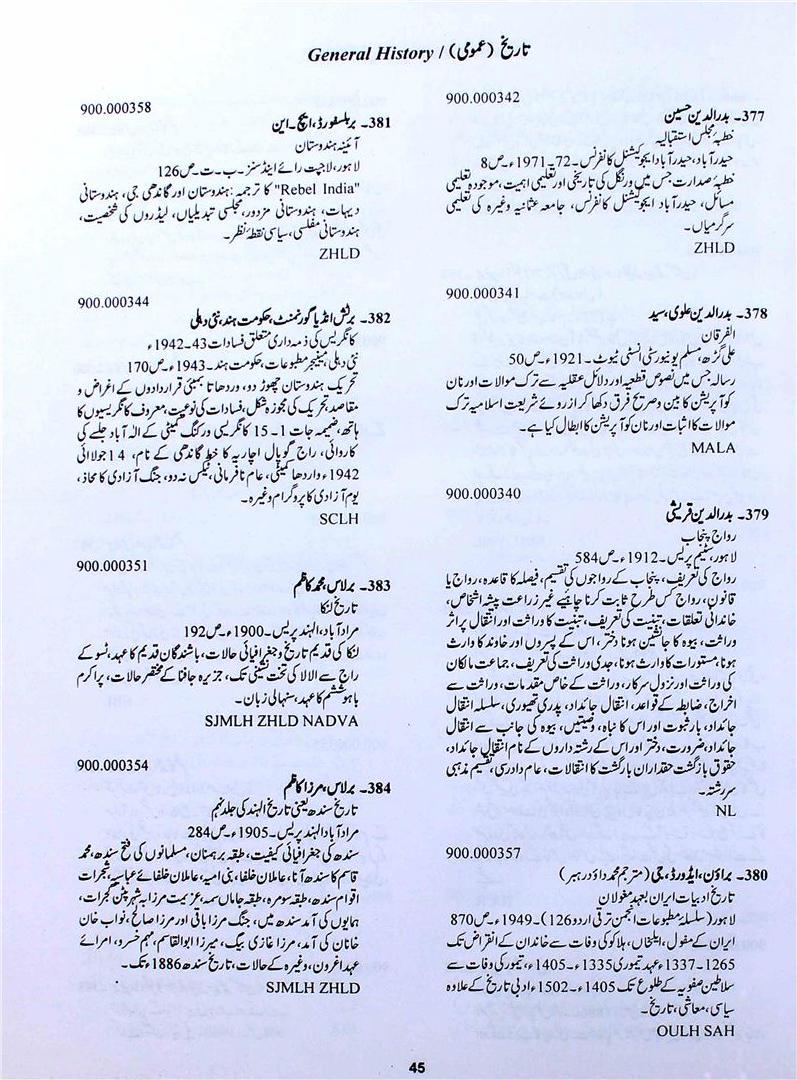 تاریخ (عمومی) / General History
900.000342
377۔ بدرالدین حسین
خطبۂ مجلس استقبالیہ
حیدرآباد، حیدرآباد ایجوکیشنل کانفرنس۔ 72۔1971ء۔ ص8
خطبۂ صدارت جس میں ورنگل کی تاریخی اور تعلیمی اہمیت، موجودہ تعلیمی
مسائل، حیدرآباد ایجوکیشنل کانفرنس، جامعہ عثمانیہ وغیرہ کی تعلیمی
سرگرمیاں۔
ZHLD
900.000341
378۔ بدرالدین علوی، سید
الفرقان
علی گڑھ، مسلم یونیورسٹی انسٹی ٹیوٹ۔ 1921ء۔ ص50
رسالہ جس میں نصوص قطعیہ اور دلائل عقلیہ سے ترک موالات اور نان
کوآپریشن کا بین وصریح فرق دکھا کر ازروئے شریعت اسلامیہ ترک
موالات کا اثبات اور نان کوآپریشن کا ابطال کیا ہے۔
MALA
900.000340
379۔ بدرالدین قریشی
رواج پنجاب
لاہور، سٹیم پریس۔ 1912ء۔ ص584
رواج کی تعریف، پنجاب کے رواجوں کی تقسیم، فیصلہ کا قاعدہ، رواج یا
قانون، رواج کس طرح ثابت کرنا چاہئیے غیر زراعت پیشہ اشخاص،
خاندانی تعلقات، تبنیت کی تعریف، تبنیت کا وراثت اور انتقال پر اثر
وراثت، بیوہ کا جانشین ہونا دختر، اس کے پسروں اور خاوند کا وارث
ہونا، مستورات کا وارث ہونا، جدی وراثت کی تعریف، جماعت مالکان
کی وراثت اور نزول سرکار، وراثت کے خاص مقدمات، وراثت سے
اخراج، ضابطہ کے قواعد، انتقال جائداد، پدری تھیوری، سلسلہ انتقال
جائداد، بار ثبوت اور اس کا نباہ، وصیتیں، بیوہ کی جانب سے انتقال
جائداد، ضرورت، دختر اور اس کے رشتہ داروں کے نام انتقال جائداد،
حقوق بازگشت حقداران بازگشت کا انتقالات، عام دادرسی، تقسیم مذہبی
سررشتہ۔
NL
900.000357
380۔ براؤن، ایڈورڈ، جی (مترجم محمد داؤد رہبر)
تاریخ ادبیات ایران بعہد مغولان
لاہور (سلسلۂ مطبوعات انجمن ترقی اردو 126)۔ 1949ء۔ ص870
ایران کے مغول، ایلخاں، ہلاکو کی وفات سے خاندان کے انقراض تک
1265-1337ء عہد تیموری 1335ء۔1405ء، تیمور کی وفات سے
سلاطین صفویہ کے طلوع تک 1405ء۔1502ء ادبی تاریخ کے علاوہ
سیاسی، معاشی، تاریخ۔
OULH SAH
900.000358
381۔ بریلسفورڈ، ایچ۔ این
آئینہ ہندوستان
لاہور، لاجپت رائے اینڈ سنز۔ ب۔ ت۔ ص126
"Rebel India" کا ترجمہ: ہندوستان اور گاندھی جی، ہندوستانی
دیہات، ہندوستانی مزدور، مجلسی تبدیلیاں، لیڈروں کی شخصیت،
ہندوستانی مفلسی، سیاسی نقطۂ نظر۔
ZHLD
900.000344
382۔ برٹش انڈیا گورنمنٹ، حکومت ہند، نئی دہلی
کانگریس کی ذمہ داری متعلق فسادات 43۔1942ء
نئی دہلی، مینیجر مطبوعات، حکومت ہند۔ 1943ء۔ ص170
تحریک ہندوستان چھوڑ دو، وردھا تا بمبئی قراردادوں کے اغراض و
مقاصد، تحریک کی مجوزہ شکل، فسادات کی نوعیت، معروف کانگریسیوں کا
ہاتھ، ضمیمہ جات 1۔15 کانگریسی ورکنگ کمیٹی کے الٰہ آباد جلسے کی
کاروائی، راج گوپال اچاریہ کا خط گاندھی کے نام، 14 جولائی
1942ء واردھا کمیٹی، عام نافرمانی، ٹیکس نہ دو، جنگ آزادی کا محاذ،
یوم آزادی کا پروگرام وغیرہ۔
SCLH
900.000351
383۔ برلاس، محمد کاظم
تاریخ لنکا
مرادآباد، الہند پریس۔ 1900ء۔ ص192
لنکا کی قدیم تاریخ و جغرافیائی حالات، باشندگان قدیم کا عہد، تسو کے
راج سے الالا کی تخت نشینی تک، جزیرہ جافنا کے مختصر حالات، پراکرم
باہو ششم کا عہد، سنہالی زبان۔
SJMLH ZHLD NADVA
900.000354
384۔ برلاس، مرزا کاظم
تاریخ سندھ یعنی تاریخ الہند کی جلد نہم
مرادآباد الہند پریس۔ 1905ء۔ ص284
سندھ کی جغرافیائی کیفیت، طبقہ برہمنان، مسلمانوں کی فتح سندھ، محمد
قاسم کا سندھ آنا، عاملان خلفاء بنی امیہ، عاملان خلفائے عباسیہ، گجرات
اقوام سندھ، طبقہ سومرہ، طبقہ جامان سمہ، عزیمت مرزا بہ شہر پٹن گجرات،
ہمایوں کی آمد سندھ میں، جنگ مرزا باقی اور مرزا صالح، نواب خان
خانان کی آمد، مرزا غازی بیگ، میرزا ابوالقاسم، مہم خسرو، امرائے
عہد اغرون، وغیرہ کے حالات، تاریخ سندھ 1886ء تک۔
SJMLH ZHLD
45